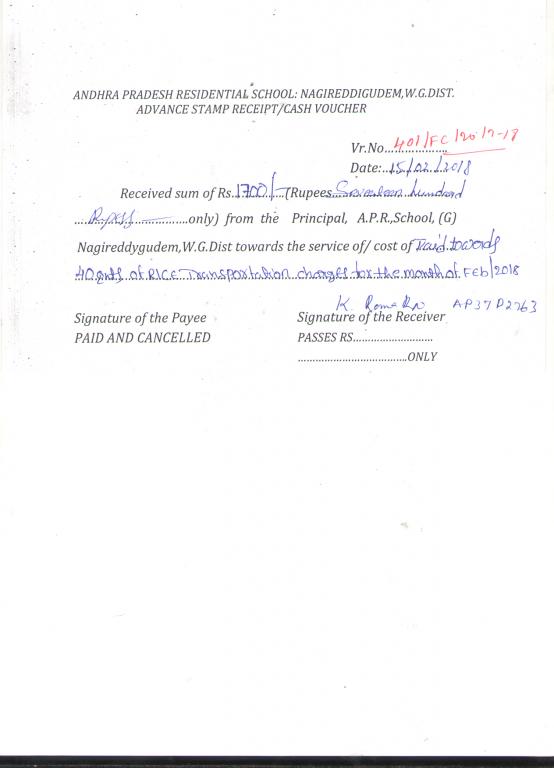 ANDHRA PRADESH RESIDENTIAL SCHOOL: NAGIREDDIGUDEM,W.G.DIST.
ADVANCE STAMP RECEIPT/CASH VOUCHER
Vr.No...401/FC/2017-18
Date:..15/02/2018
Received sum of Rs.1700/-(Rupees Seventeen hundred
Rupees only) from the Principal, A.P.R.,School, (G)
Nagireddygudem,W.G.Dist towards the service of/ cost of Paid towards
40 qnts of RICE Transportation charges for the month of FEB/2018
K. AP37D2763
Signature of the Payee Signature of the Receiver
PAID AND CANCELLED PASSES RS...........................
......................................ONLY